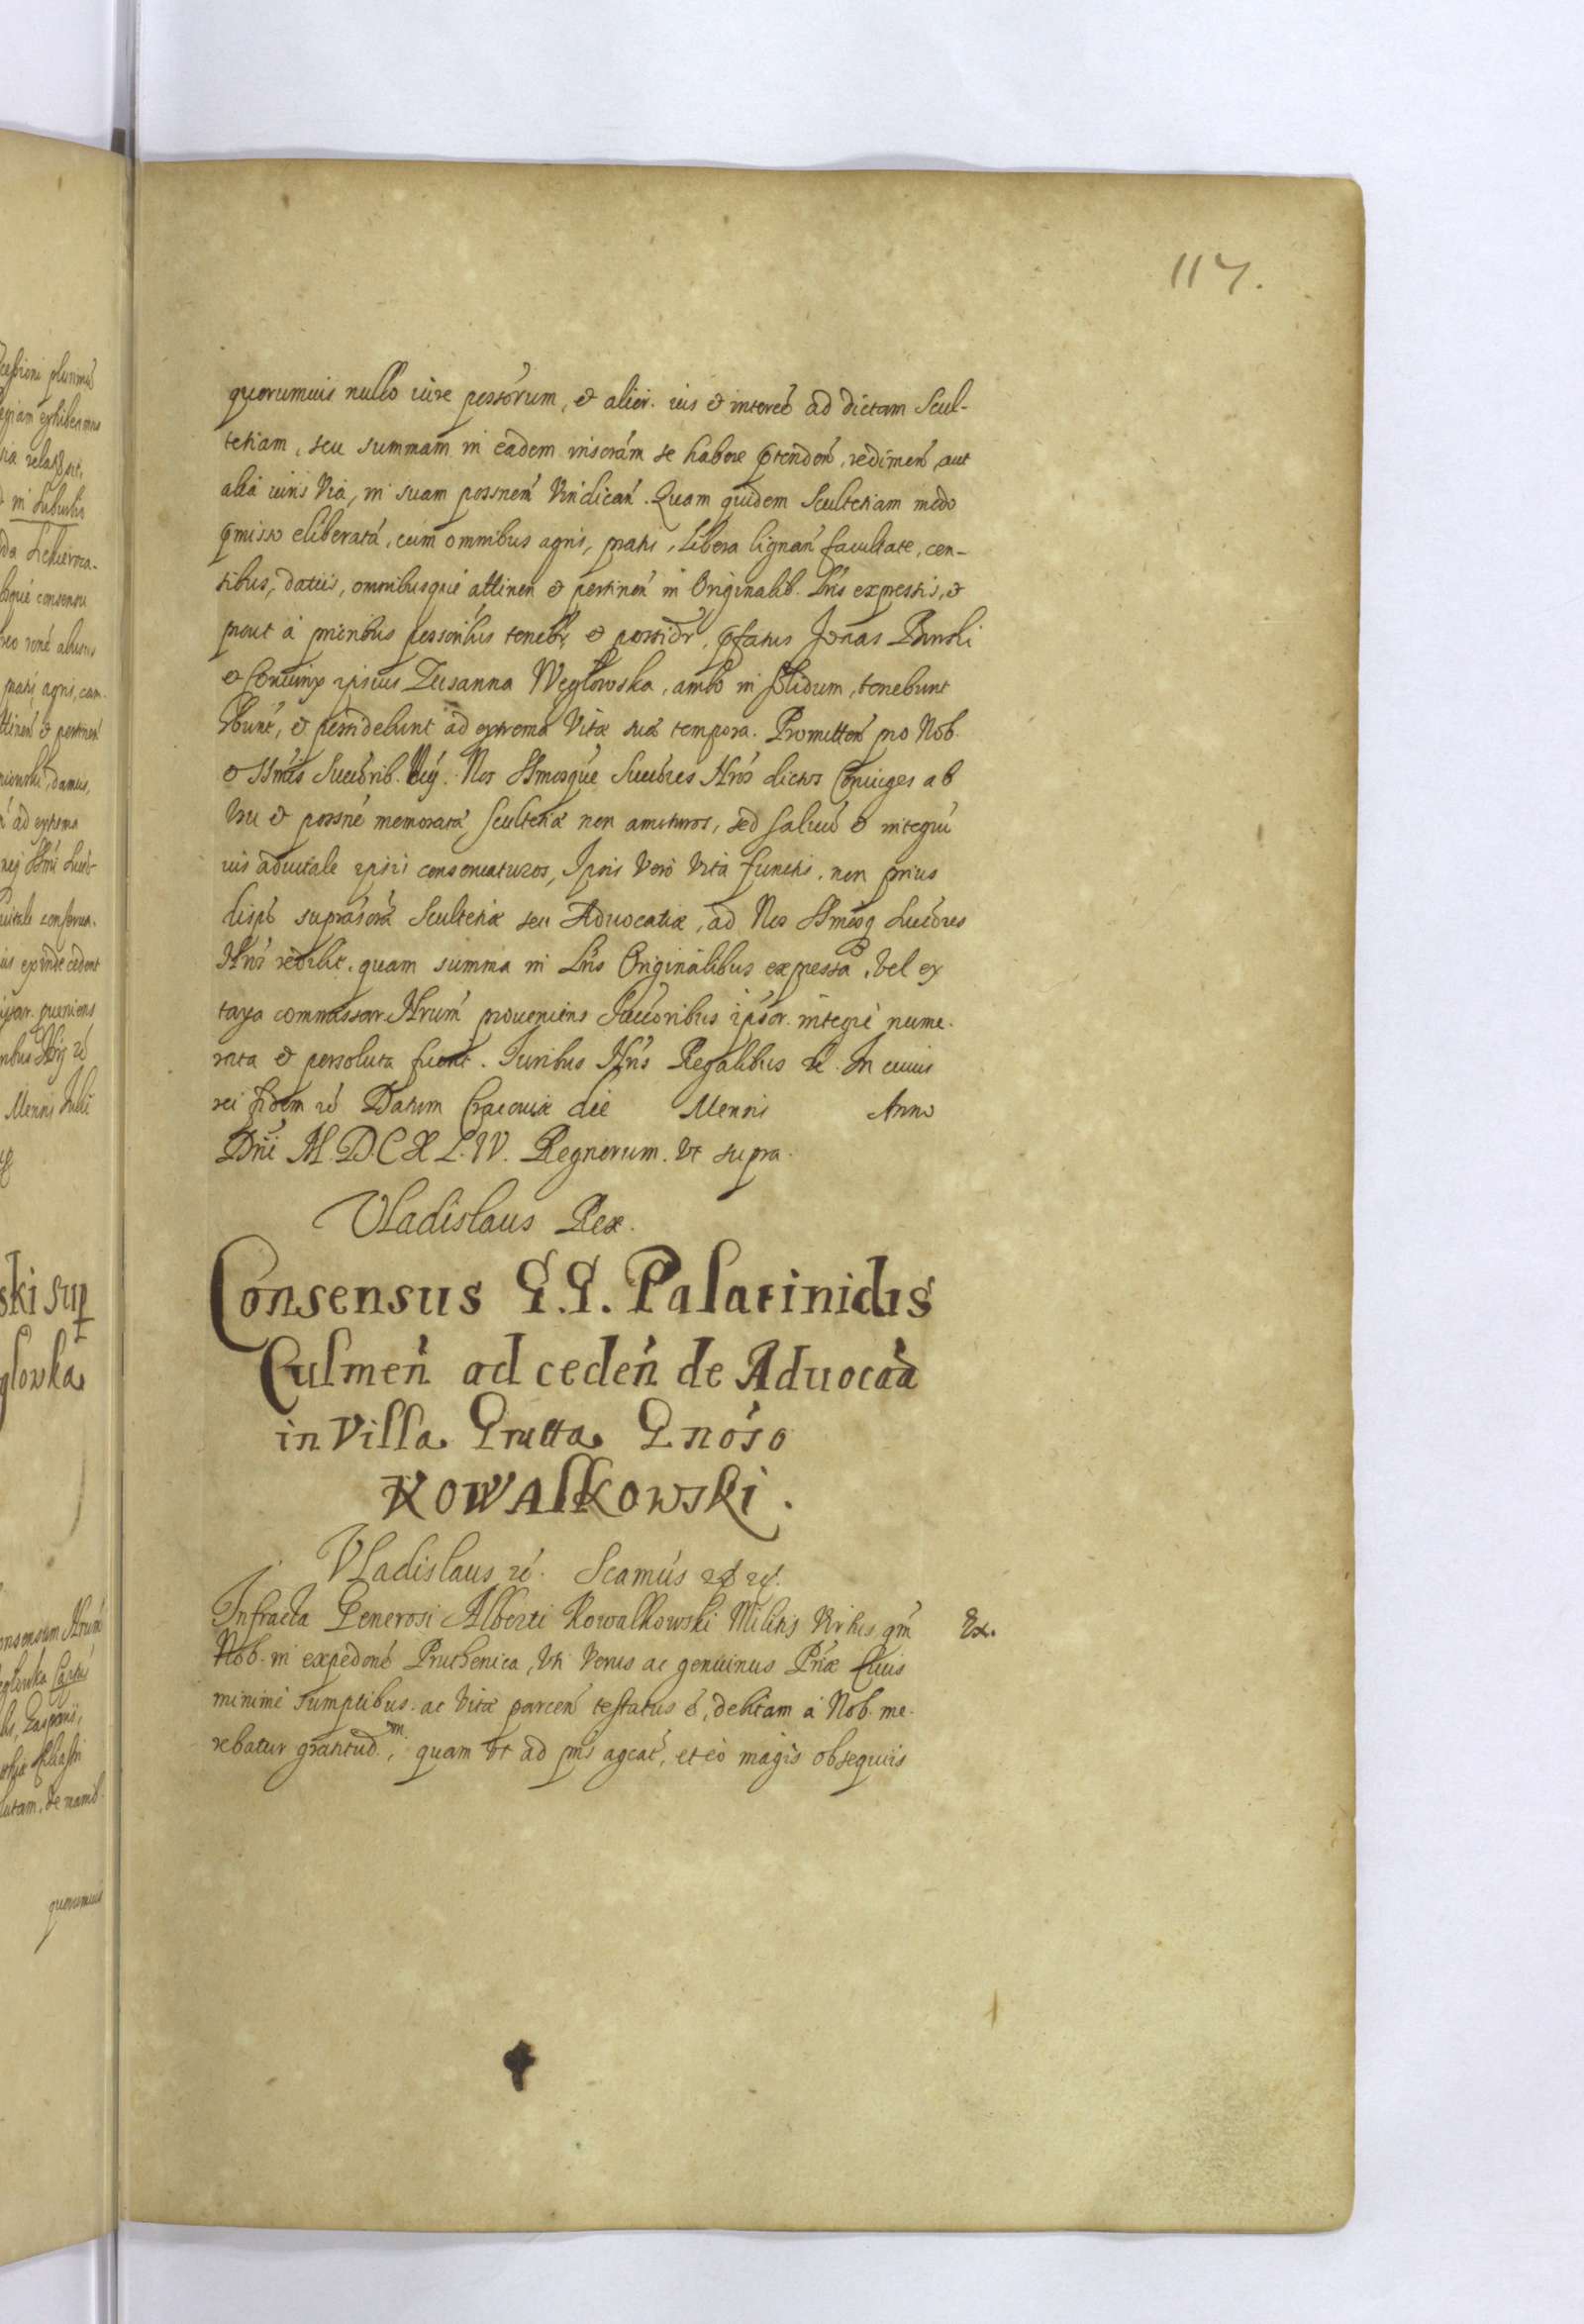 117.
quorumuis nullo iure possorum, et alior. ius et interee ad dictam Scul-
tetiam, seu summam in eadem inscram se habere ptenden, redimen aut
alia iuris via, in suam possnem vindican. Quam quidem Scultetiam modo
pmisso eliberata, cum omnibus agris, pratis, libera lignan facultate, cen-
sibus, datiis, omnibusque attinen et pertinen in Originalib. Lris expressis, et
prout a prioribus possoribus teneb et possidr, pfatus Jonas
et Coniunx ipsius Zusanna Węglowska, ambo in solidum, tenebunt
hbunt, et possidebunt ad extrema Vitæ suæ tempora. Promitten pro Nob.
et Smis Succorib. Nos Smosque Succores Nros dictos Coniuges ab
Usu et possne memorata Scultetiæ non amoturos, sed saluu et integru
ius aduitale ipsis conseruaturos, Ipsis vero vita functis, non prius
dispo suprascra Scultetiæ seu Aduocatiæ, ad Nos Smosq Succores
Nros redibit, quam summa in Lris Originalibus expressa, vel ex
taxa commissar. Nrum proueniens Succoribus ipsor. integre nume-
rata et persoluta fuerit. Iuribus Nris Regalibus &c. In cuius
rei fidem &c Datum Cracouiæ die Mensis Anno
Dni M.D.C.X.L.IV. Regnorum. vt supra.
Vladislaus Rex.
Consensus G.G. Palatinidis
Culmen ad ceden de Aduocaa
in Villa Grutta Gnoso
Kowalkowski.
Vladislaus &c. Scamus &c &c.
Infracta Generosi Alberti Kowalkowski Militis Virtus qm Ex.
Nob. in expedone Pruthenica, vti verus ac genuinus Priæ Ciuis
minime sumptibus ac vitæ parcen testatus e, debitam a Nob. me-
rebatur gratitud.m, quam vt ad pns ageat, et eo magis obsequiis